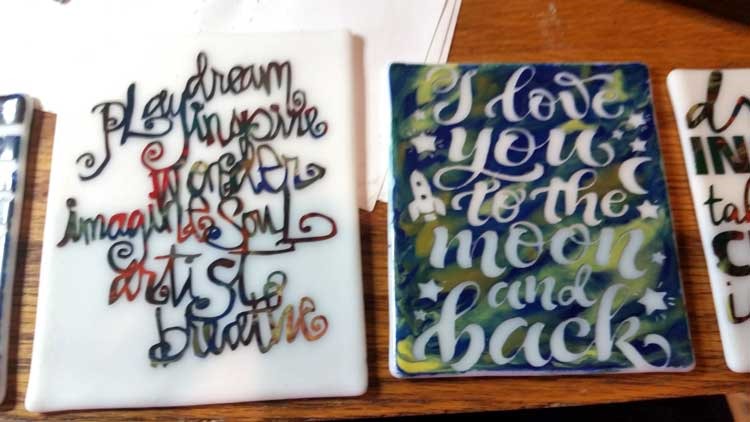 pLaydream
inspire
wonder
imagine SouL
artist
breathe
I love
you
to the
moon
and
back